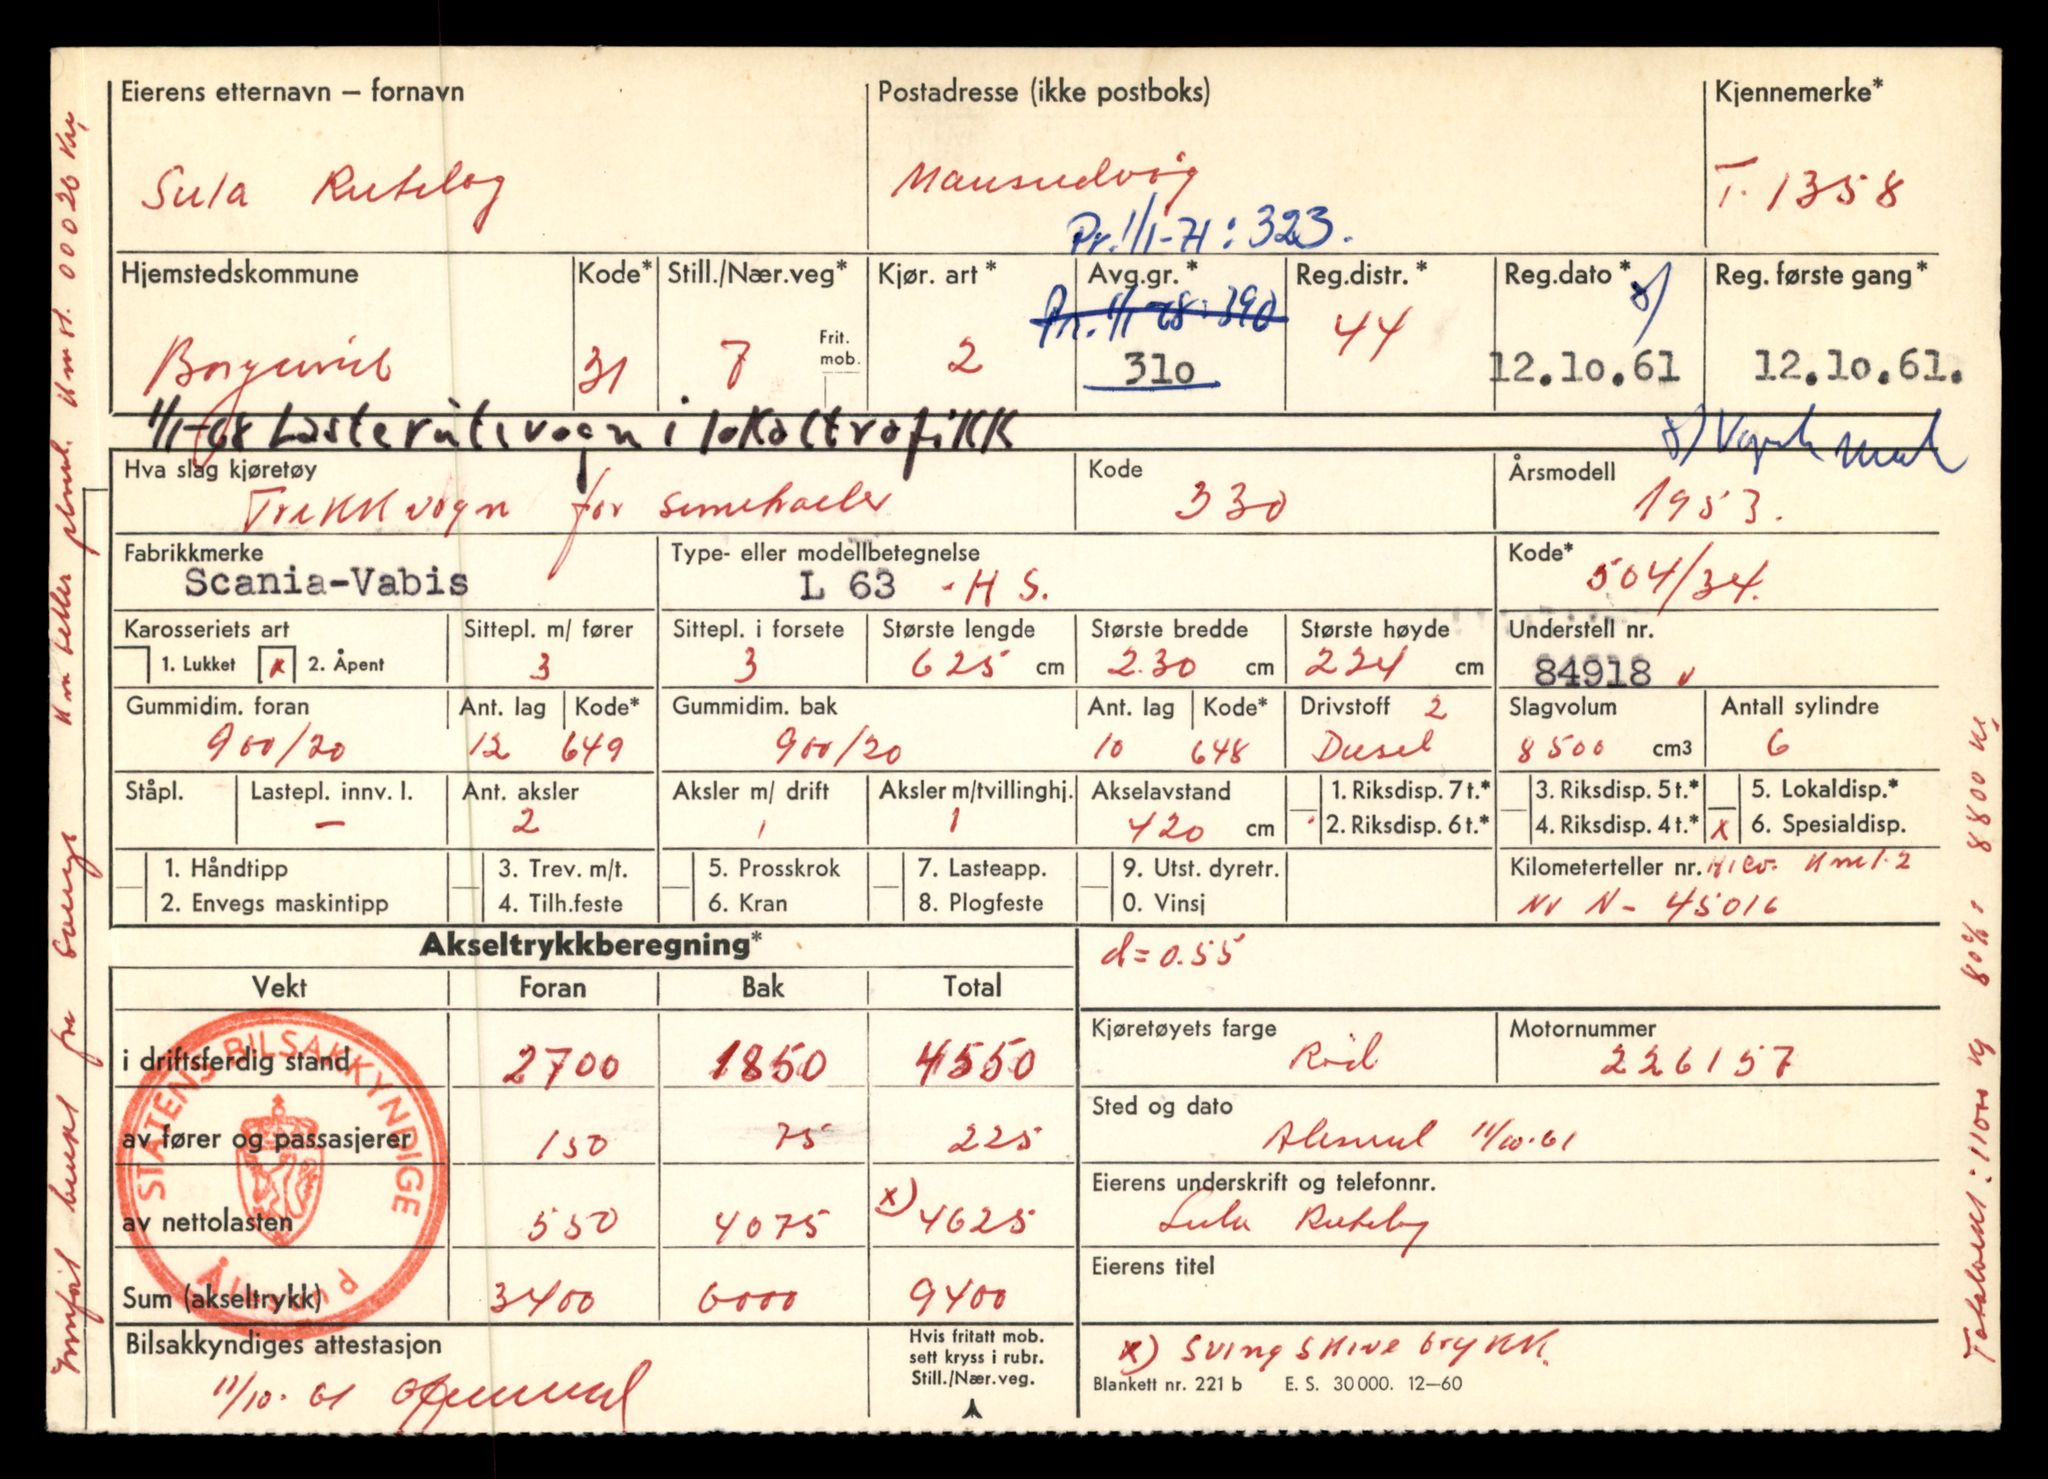 Eierens etternavn – fornavn
Postadresse (ikke postboks)
Kjennemerke*
Sula Rutelag
Mauseidvåg
T- 1358
Pr. 1/1-71: 323.
Hjemstedskommune
Kode*
Still./Nær.veg*
Kjør. art *
Avg.gr. *
Reg.distr. *
Reg.dato *
Reg. første gang*
Pr. 1/1-68: 390
Borgund
31
7
Frit. mob.
2
310
44
12.10.61
12.10.61.
1/1-68 Lasterutevogn i lokaltrafikk
x) Vognk
Hva slag kjøretøy
Kode
Årsmodell
Trekkvogn for semitrailer
330
1953.
Fabrikkmerke
Type- eller modellbetegnelse
Kode*
Scania-Vabis
L 63 - H S.
504/34.
Karosseriets art
Sittepl. m/ fører
Sittepl. i forsete
Største lengde
Største bredde
Største høyde
Understell nr.
1. Lukket x 2. Åpent
3
3
625 cm
2.30 cm
224 cm
84918 v
Gummidim. foran
Ant. lag
Kode*
Gummidim. bak
Ant. lag
Kode*
Drivstoff 2
Slagvolum
Antall sylindre
900/20
12
649
900/20
10
648
Diesel
8500 cm3
6
Ståpl.
Lastepl. innv. l.
Ant. aksler
Aksler m/ drift
Aksler m/tvillinghj.
Akselavstand
1. Riksdisp. 7 t.*
3. Riksdisp. 5 t.*
5. Lokaldisp.*
—
2
1
1
420 cm
2. Riksdisp. 6 t.*
4. Riksdisp. 4 t.*
x 6. Spesialdisp.
1. Håndtipp
3. Trev. m/t.
5. Prosskrok
7. Lasteapp.
9. Utst. dyretr.
Kilometerteller nr. Hico. Kml. 2
2. Envegs maskintipp
4. Tilh.feste
6. Kran
8. Plogfeste
0. Vinsj
Nr N- 45016
Akseltrykkberegning*
d = 0.55
Vekt
Foran
Bak
Total
Kjøretøyets farge
Motornummer
i driftsferdig stand
2700
1850
4550
Rød
226157
Sted og dato
av fører og passasjerer
150
75
225
Ålesund 11/10-61
Eierens underskrift og telefonnr.
av nettolasten
550
4075
x) 4625
Sula Rutelag
Eierens titel
Sum (akseltrykk)
3400
6000
9400
Bilsakkyndiges attestasjon
Hvis fritatt mob.
sett kryss i rubr.
Still./Nær.veg.
x) Svingskivetrykk.
11/10-61
Blankett nr. 221 b E. S. 30000. 12—60
STATENS BILSAKKYNDIGE
Ålesund
Innført brukt fra Sverige Km teller plomb. Km st. 00020 Km
Totalvekt: 11000 kg 80%: 8800 kg